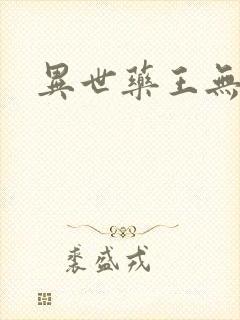 異世藥王無
裘盛戎